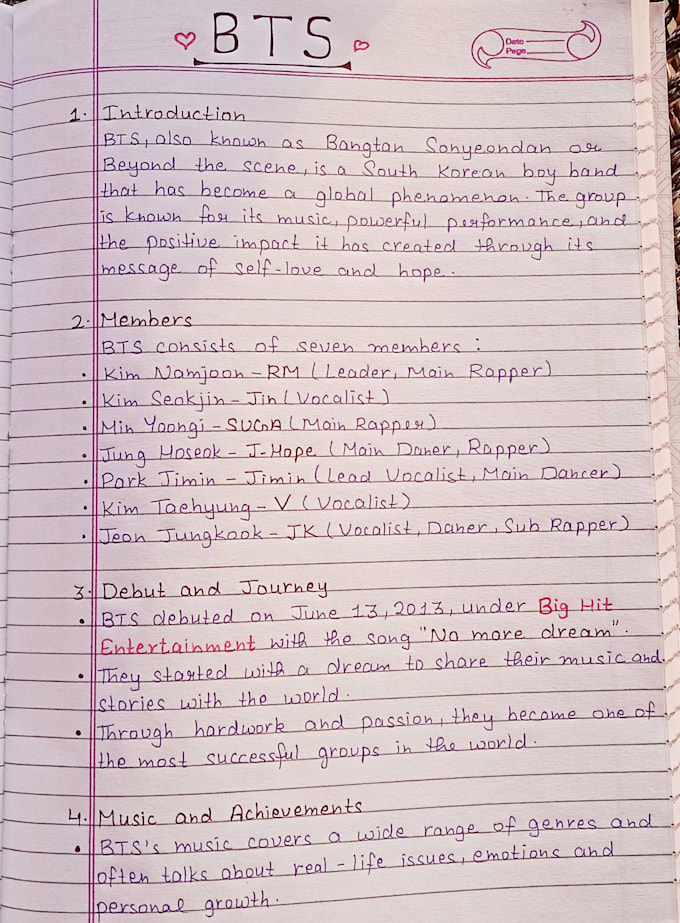 BTS
Date
Page
1. Introduction
BTS, also known as Bangtan Sonyeondan or
Beyond the scene, is a South Korean boy band
that has become a global phenomenon. The group
is known for its music, powerful performance, and
the positive impact it has created through its
message of self-love and hope.
2. Members
BTS consists of seven members :
• Kim Namjoon - RM (Leader, Main Rapper)
• Kim Seokjin - Jin (Vocalist)
• Min Yoongi - SUGA (Main Rapper)
• Jung Hoseok - J-Hope (Main Daner, Rapper)
• Park Jimin - Jimin (Lead Vocalist, Main Dancer)
• Kim Taehyung - V (Vocalist)
• Jeon Jungkook - JK (Vocalist, Daner, Sub Rapper)
3. Debut and Journey
• BTS debuted on June 13, 2013, under Big Hit
Entertainment with the song "No more dream".
• They started with a dream to share their music and
stories with the world.
• Through hardwork and passion, they become one of
the most successful groups in the world.
4. Music and Achievements
• BTS's music covers a wide range of genres and
often talks about real-life issues, emotions and
personal growth.